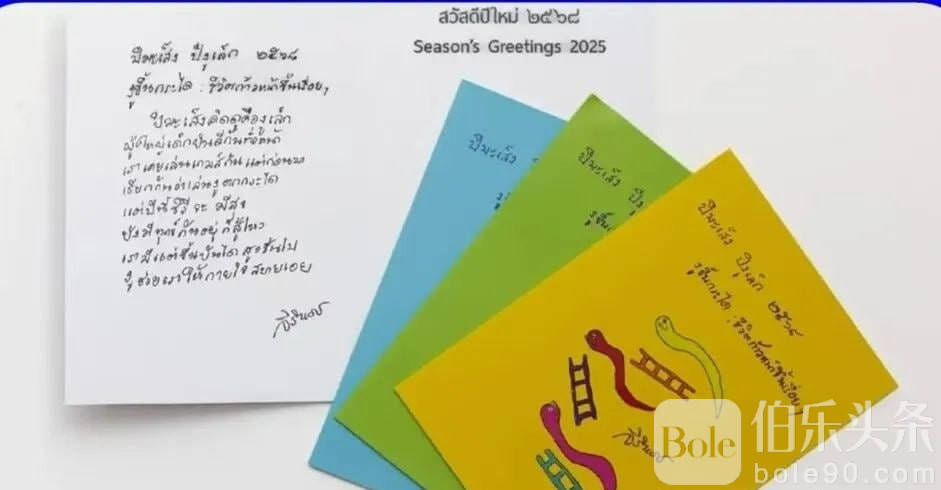 สวัสดีปีใหม่ ๒๕๖๘
Season's Greetings 2025
ปีมะเส็ง ปีงูเล็ก ๒๕๖๘
งูขึ้นกระได : ชีวิตก้าวหน้าขึ้นเรื่อยๆ
ปีมะเส็งคิดดูคืองูเล็ก
ผู้ใหญ่เด็กยินลีกันทั่วหน้า
เราเคยเล่นเกมส์กันแต่ก่อนมา
เรียกกันว่าเล่นงูตกกระได
แต่ปีนี้ชีวีจะมีสุข
ยังมีทุกข์กันอยู่ก็สู้ไหว
เรามีแต่ขึ้นบันไดสูงขึ้นไป
งูช่วยเราให้กายใจสบายเอย
สิรินธร
ปีมะเส็ง ปี
ปีมะเส็ง ปีงู
งูขึ้น
ปีมะเส็ง ปีงูเล็ก ๒๕๖๘
งูขึ้นกระได : ชีวิตก้าวหน้าขึ้นเรื่อยๆ
สิรินธร
Bole
伯乐头条
bole90.com